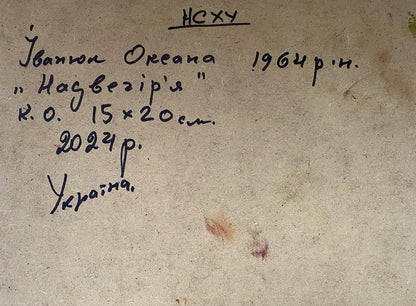 НСХУ
Іванюк Оксана 1964 р.н.
„Надвечір'я"
К.О. 15 × 20 см.
2024 р.
Україна.